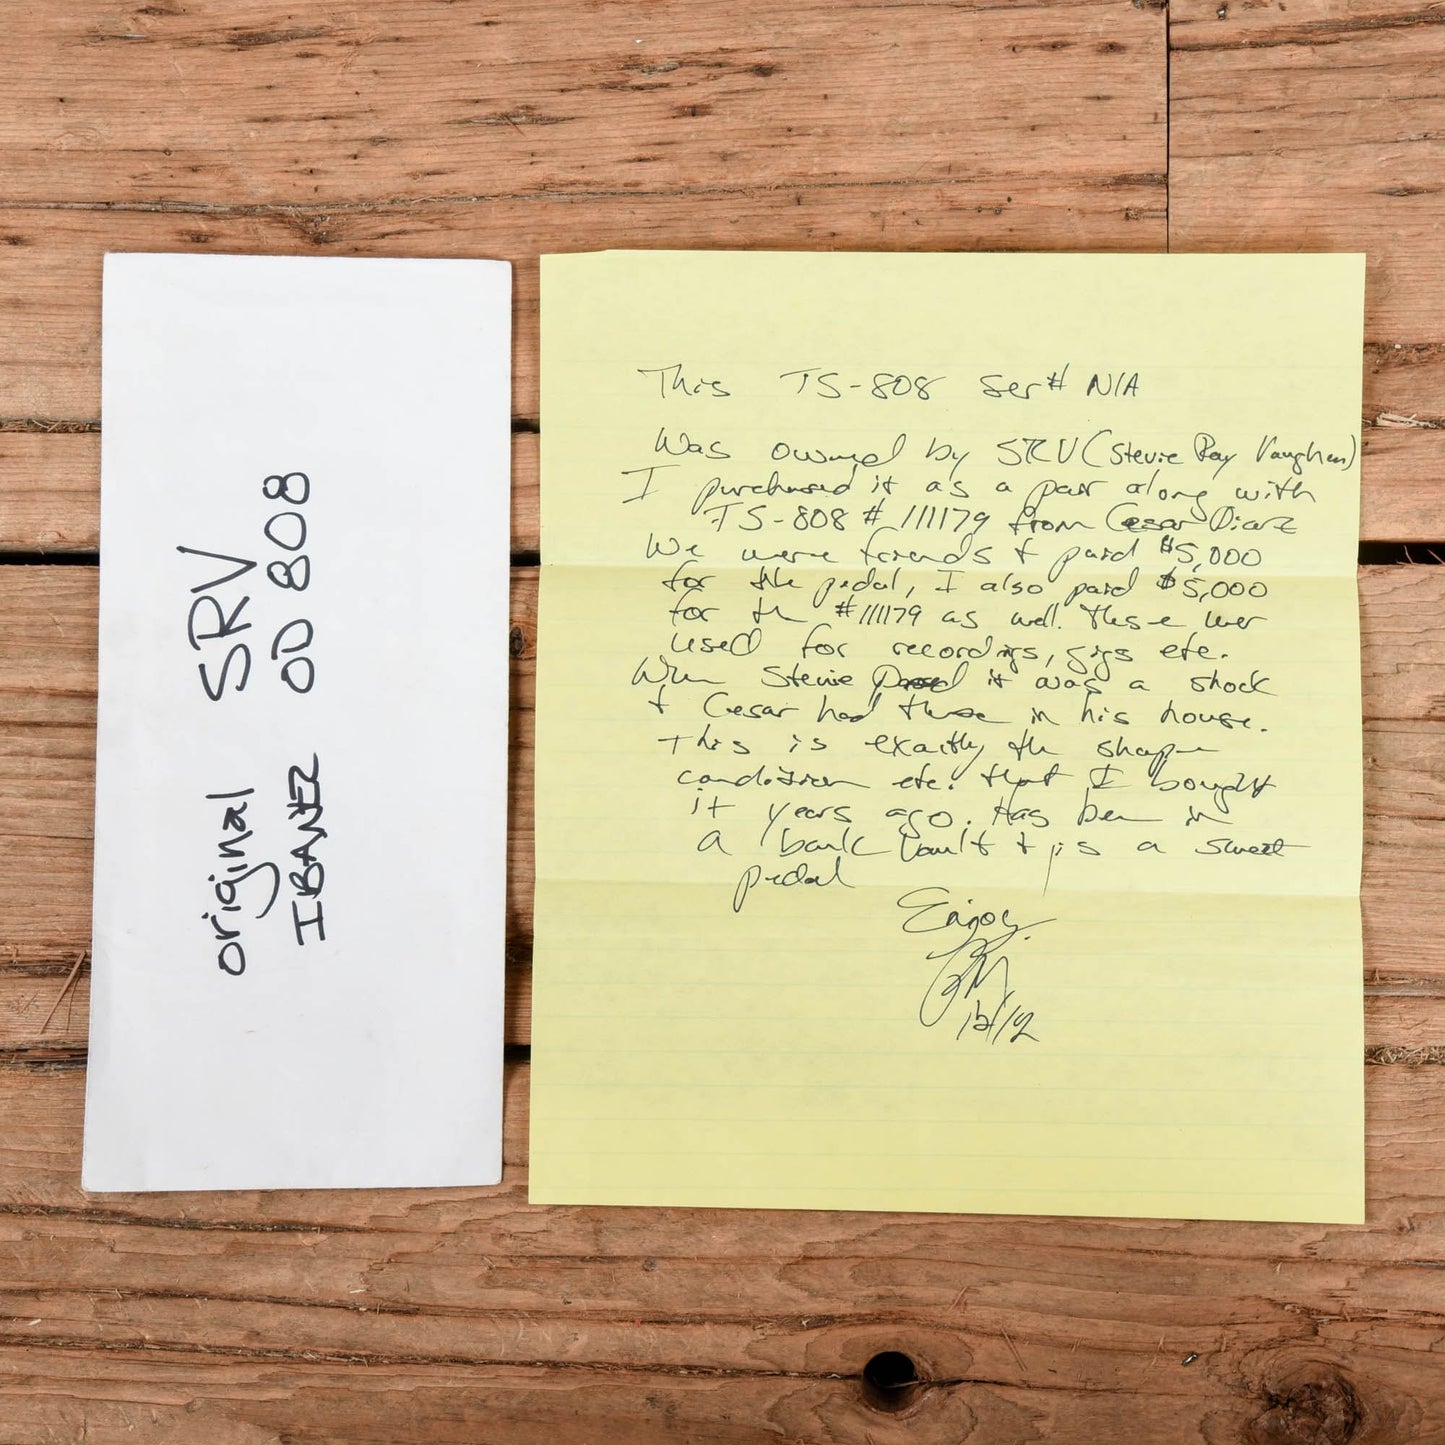 original SRV
IBANEZ OD 808
This TS-808 Ser# N/A
Was owned by SRV (Stevie Ray Vaughan)
I purchased it as a pair along with
TS-808 # 111179 from Cesar Diaz
We were friends & paid $5,000
for the pedal, I also paid $5,000
for the #111179 as well. These were
used for recordings, gigs etc.
When Stevie Passed it was a shock
& Cesar had these in his house.
This is exactly the shape
condition etc. that I bought
it years ago. Has been in
a bank vault & is a sweet
pedal
Enjoy.
12/12